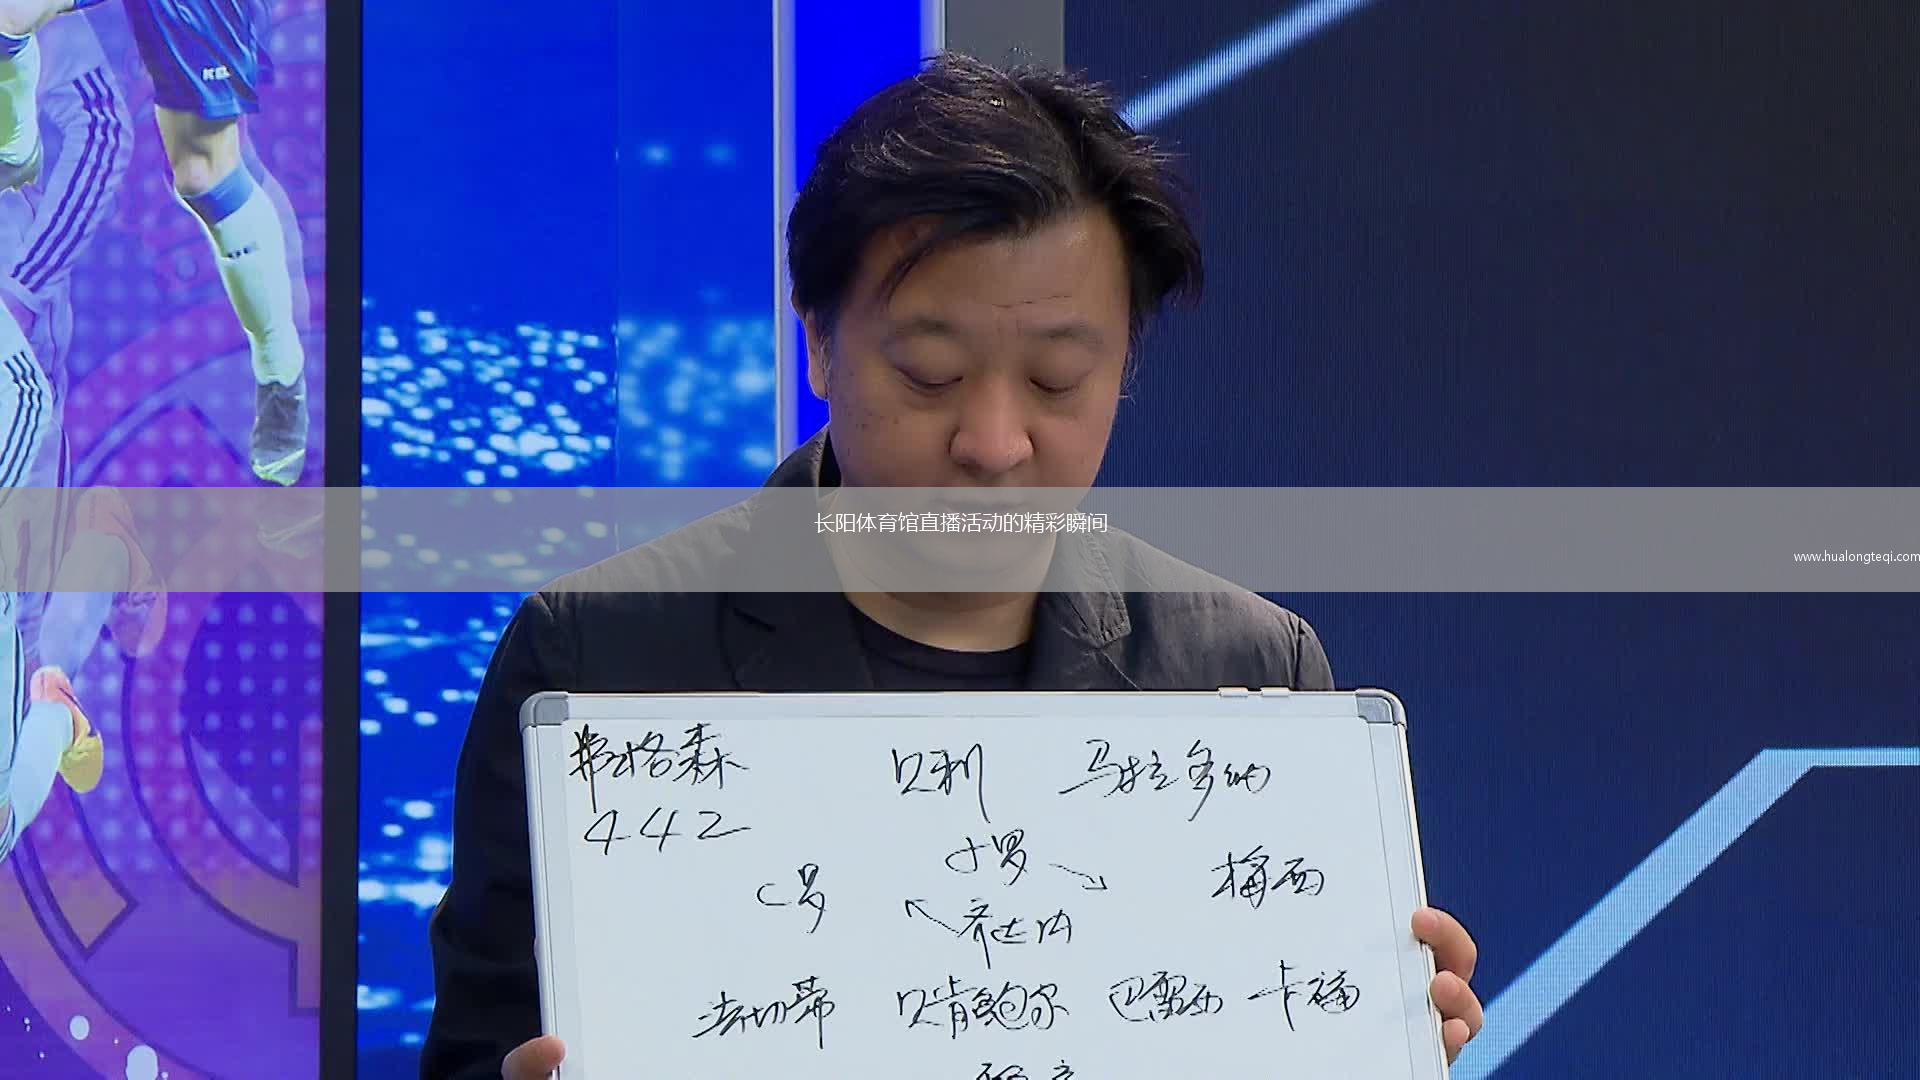 长阳体育馆直播活动的精彩瞬间
www.hualongteqi.com
弗格森 贝利 马拉多纳
442
小罗
C罗 梅西
齐达内
法切蒂 贝肯鲍尔 巴雷西 卡福